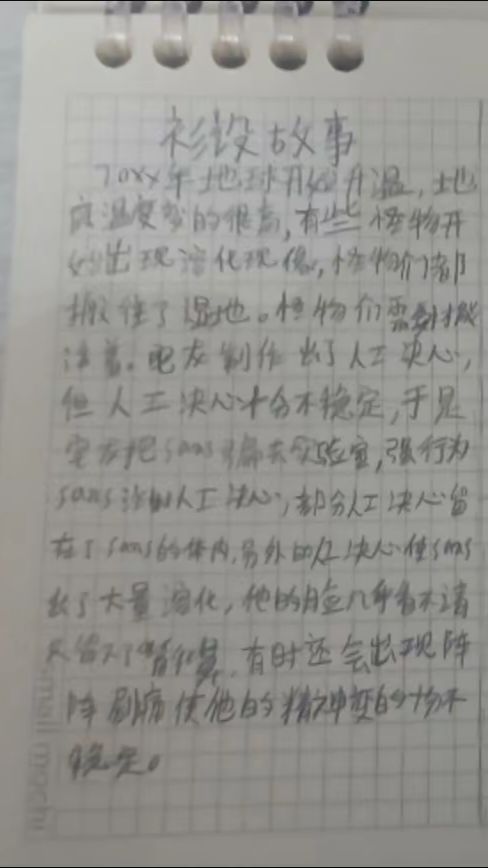 衫设故事
70xx年地球开始升温,地
底温度变的很高,有些怪物开
始出现溶化现像,怪物们都
搬往了湿地。怪物们需要
活着。电龙制作出了人工决心,
但人工决心十分不稳定,于是
电龙把sans骗去实验室,强行为
sans注射人工决心,部分人工决心留
在了sans的体内,另外的人工决心使sans
出了大量溶化,他的脸几乎看不清
只留下了嘴和鼻,有时还会出现阵
阵剧痛使他的精神变的十分不
稳定。